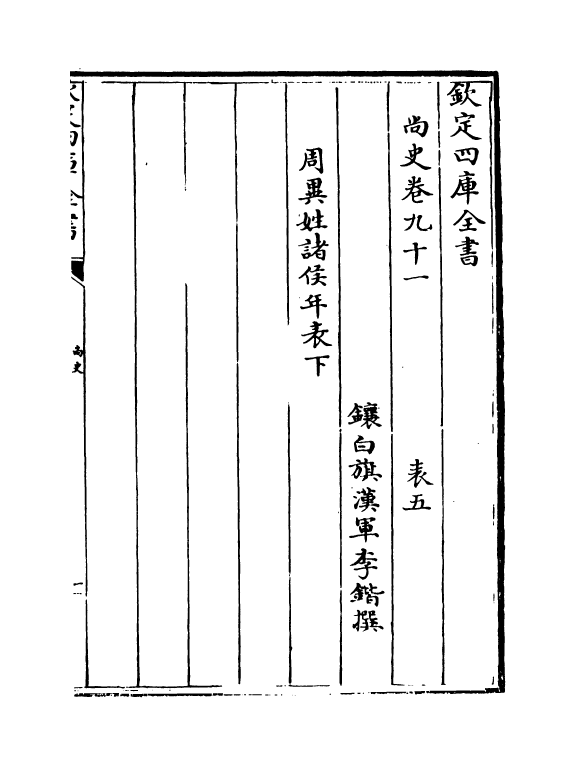 欽定四庫全書
尚史卷九十一　　表五
鑲白旗漢軍李鍇撰
周異姓諸侯年表下
欽定四庫全書
尚史
一